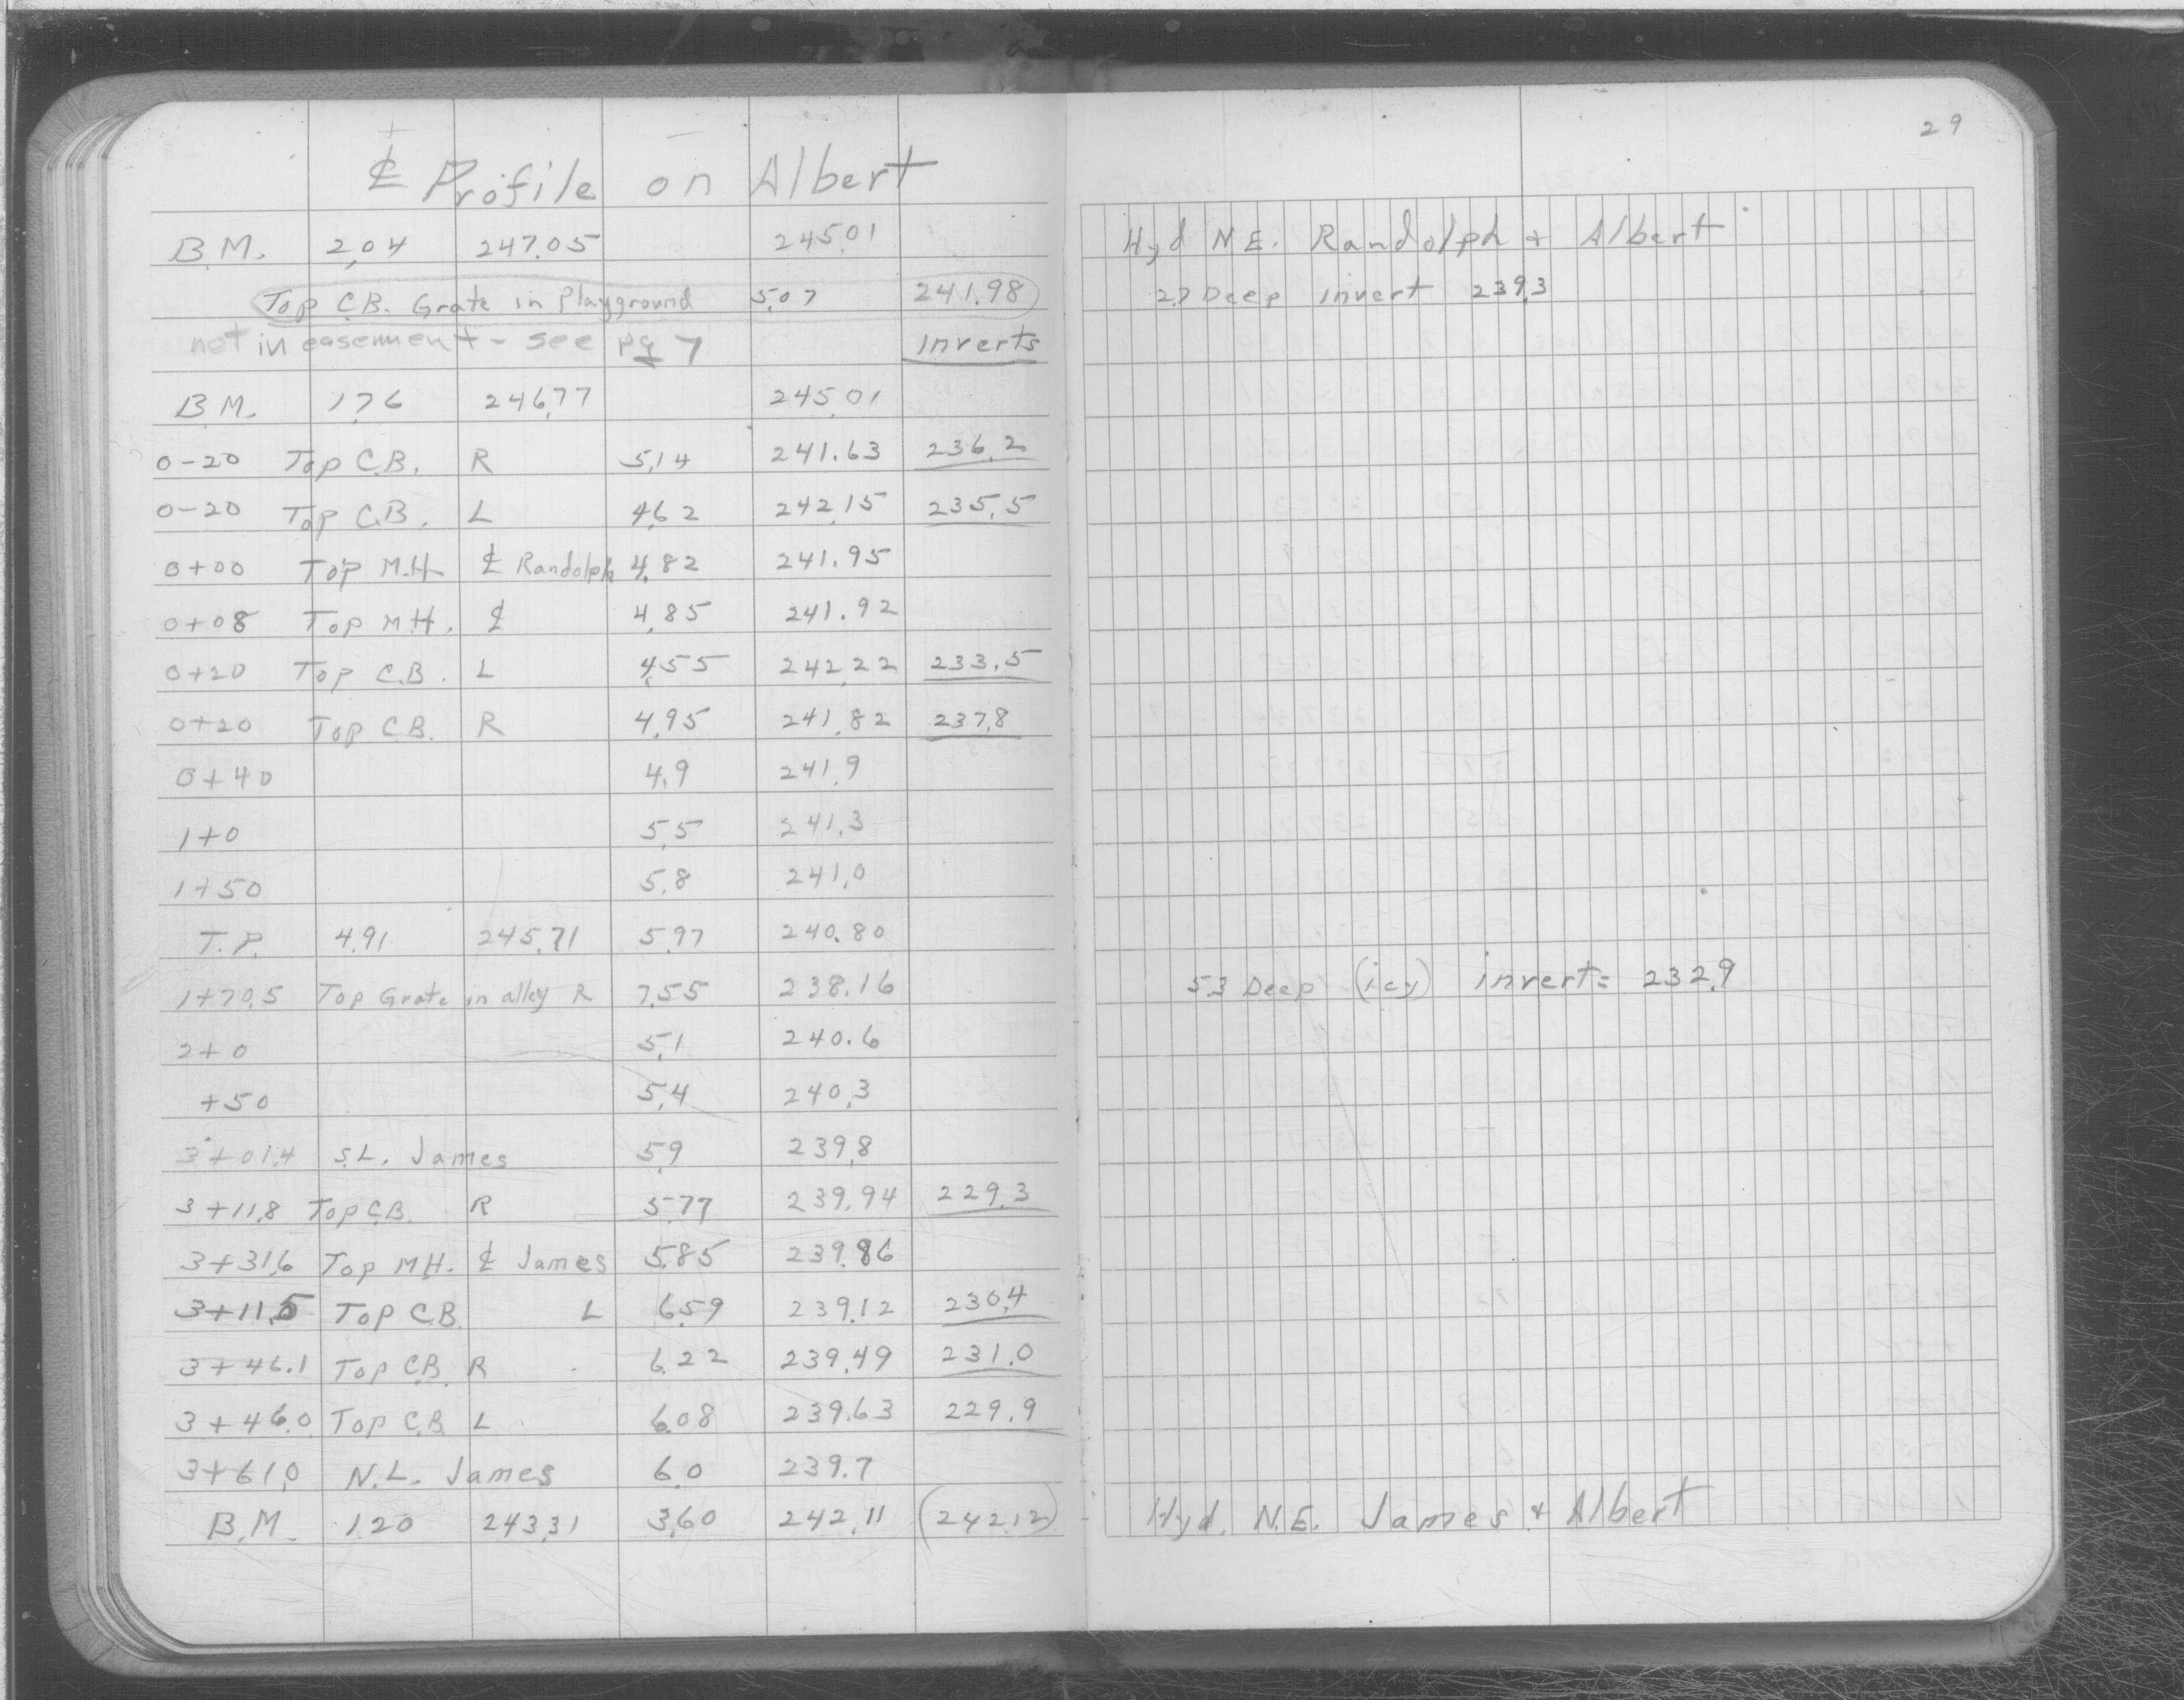 ℄ Profile on Albert
B.M. 2.04 247.05 245.01
Top C.B. Grate in Playground 5.07 241.98
not in easement - see pg 7 inverts
B.M. 1.76 246.77 245.01
0-20 Top C.B. R 5.14 241.63 236.2
0-20 Top C.B. L 4.62 242.15 235.5
0+00 Top M.H. ℄ Randolph 4.82 241.95
0+08 Top M.H. ℄ 4.85 241.92
0+20 Top C.B. L 4.55 242.22 233.5
0+20 Top C.B. R 4.95 241.82 237.8
0+40 4.9 241.9
1+0 5.5 241.3
1+50 5.8 241.0
T.P. 4.91 245.71 5.97 240.80
1+70.5 Top Grate in alley R 7.55 238.16
2+0 5.1 240.6
+50 5.4 240.3
3+01.4 S.L. James 5.9 239.8
3+11.8 Top C.B. R 5.77 239.94 229.3
3+31.6 Top M.H. ℄ James 5.85 239.86
3+11.5 Top C.B. L 6.59 239.12 230.4
3+46.1 Top C.B. R 6.22 239.49 231.0
3+46.0 Top C.B. L 6.08 239.63 229.9
3+61.0 N.L. James 6.0 239.7
B.M. 1.20 243.31 3.60 242.11 (242.12)
29
Hyd N.E. Randolph + Albert
2.7 Deep invert 239.3
5.3 Deep (icy) invert = 232.9
Hyd. N.E. James + Albert